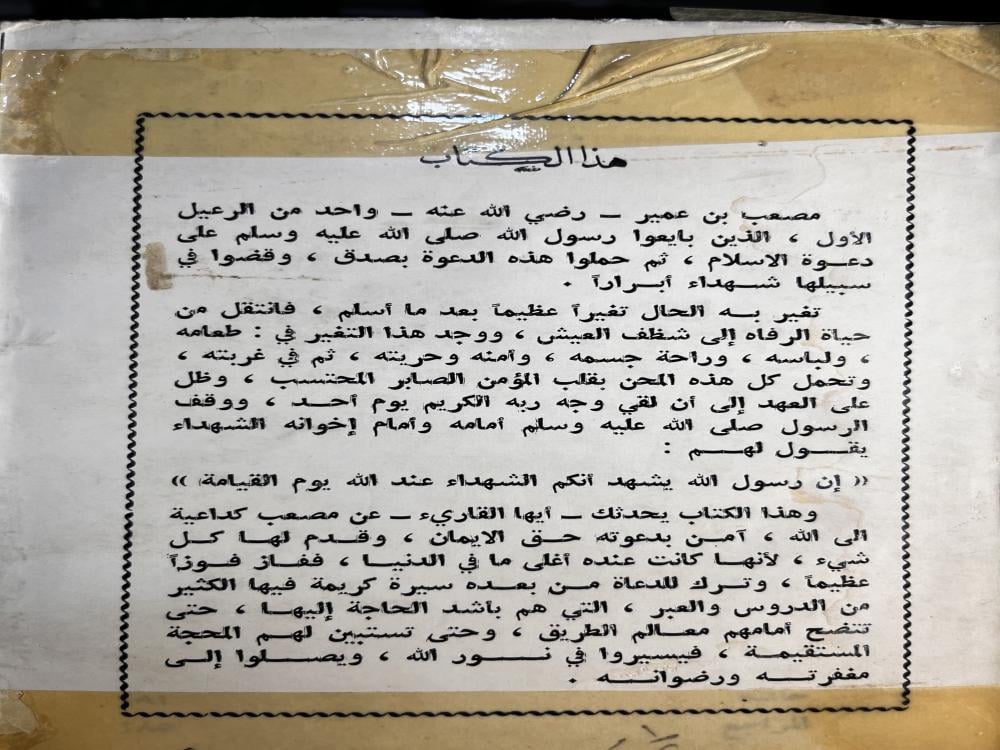 هذا الكتاب
مصعب بن عمير – رضي الله عنه – واحد من الرعيل
الأول ، الذين بايعوا رسول الله صلى الله عليه وسلم على
دعوة الاسلام ، ثم حملوا هذه الدعوة بصدق ، وقضوا في
سبيلها شهداء أبراراً .
تغير به الحال تغيراً عظيماً بعد ما أسلم ، فانتقل من
حياة الرفاه إلى شظف العيش ، ووجد هذا التغير في : طعامه
، ولباسه ، وراحة جسمه ، وأمنه وحريته ، ثم في غربته ،
وتحمل كل هذه المحن بقلب المؤمن الصابر المحتسب ، وظل
على العهد إلى أن لقي وجه ربه الكريم يوم أحد ، ووقف
الرسول صلى الله عليه وسلم أمامه وأمام إخوانه الشهداء
يقول لهم :
(( إن رسول الله يشهد أنكم الشهداء عند الله يوم القيامة ))
وهذا الكتاب يحدثك – أيها القاريء – عن مصعب كداعية
الى الله ، آمن بدعوته حق الايمان ، وقدم لها كل
شيء ، لأنها كانت عنده أغلى ما في الدنيا ، ففاز فوزاً
عظيماً ، وترك للدعاة من بعده سيرة كريمة فيها الكثير
من الدروس والعبر ، التي هم بأشد الحاجة إليها ، حتى
تتضح أمامهم معالم الطريق ، وحتى تستبين لهم المحجة
المستقيمة ، فيسيروا في نور الله ، ويصلوا إلى
مغفرته ورضوانه .